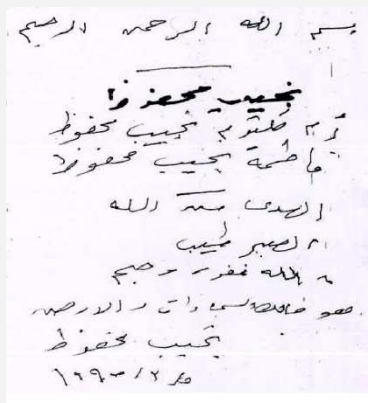 بسم الله الرحمن الرحيم
نجيب محفوظ
أم كلثوم نجيب محفوظ
فاطمة نجيب محفوظ
الهدى من الله
الصبر طيب
الله غفور رحيم
هو والارض
نجيب محفوظ